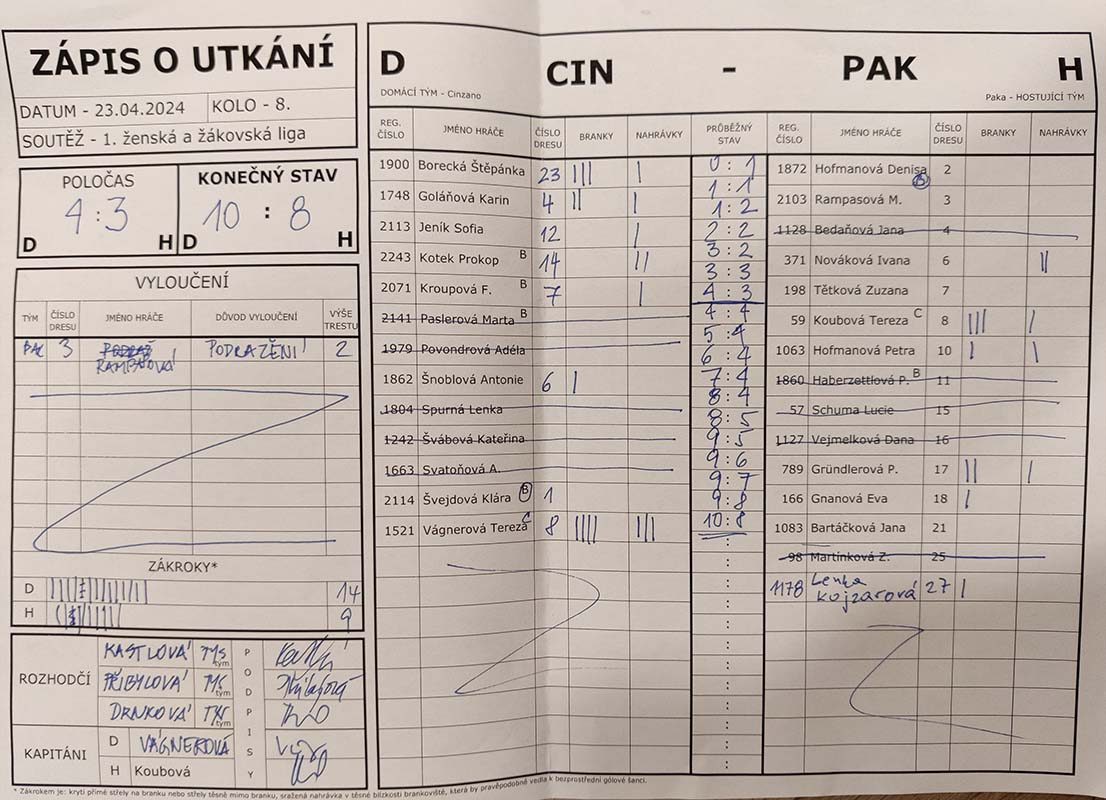 ZÁPIS O UTKÁNÍ
DATUM - 23.04.2024 KOLO - 8.
SOUTĚŽ - 1. ženská a žákovská liga
POLOČAS KONEČNÝ STAV
4 : 3 10 : 8
D H D H
VYLOUČENÍ
TÝM ČÍSLO DRESU JMÉNO HRÁČE DŮVOD VYLOUČENÍ VÝŠE TRESTU
PAK 3 PODRAŽENÍ 2
ZÁKROKY*
D 14
H 9
ROZHODČÍ
KASTLOVÁ TMS tým
PŘIBYLOVÁ TMS tým
DRNKOVÁ tým
PODPISY
KAPITÁNI
D VÁGNEROVÁ
H Koubová
D CIN - PAK H
DOMÁCÍ TÝM - Cinzano Paka - HOSTUJÍCÍ TÝM
REG. ČÍSLO JMÉNO HRÁČE ČÍSLO DRESU BRANKY NAHRÁVKY PRŮBĚŽNÝ STAV REG. ČÍSLO JMÉNO HRÁČE ČÍSLO DRESU BRANKY NAHRÁVKY
1900 Borecká Štěpánka 23 ||| |
1748 Goláňová Karin 4 || |
2113 Jeník Sofia 12 |
2243 Kotek Prokop B 14 ||
2071 Kroupová F. B 7 |
2141 Paslerová Marta B
1979 Povondrová Adéla
1862 Šnoblová Antonie 6 |
1804 Spurná Lenka
1242 Švábová Kateřina
1663 Svatoňová A.
2114 Švejdová Klára B 1
1521 Vágnerová Tereza C 8 |||| |||
0 : 1
1 : 1
1 : 2
2 : 2
3 : 2
3 : 3
4 : 3
4 : 4
5 : 4
6 : 4
7 : 4
8 : 4
8 : 5
9 : 5
9 : 6
9 : 7
9 : 8
10 : 8
1872 Hofmanová Denisa B 2
2103 Rampasová M. 3
1128 Bedaňová Jana 4
371 Nováková Ivana 6 ||
198 Tětková Zuzana 7
59 Koubová Tereza C 8 ||| |
1063 Hofmanová Petra 10 | |
1860 Haberzettlová P. B 11
57 Schuma Lucie 15
1127 Vejmelková Dana 16
789 Gründlerová P. 17 || |
166 Gnanová Eva 18 |
1083 Bartáčková Jana 21
98 Martínková Z. 25
1178 Lenka Kojzarová 27 |
* Zákrokem je: krytí přímé střely na branku nebo střely těsně mimo branku, sražená nahrávka v těsné blízkosti brankoviště, která by pravěpodobně vedla k bezprostřední gólové šanci.